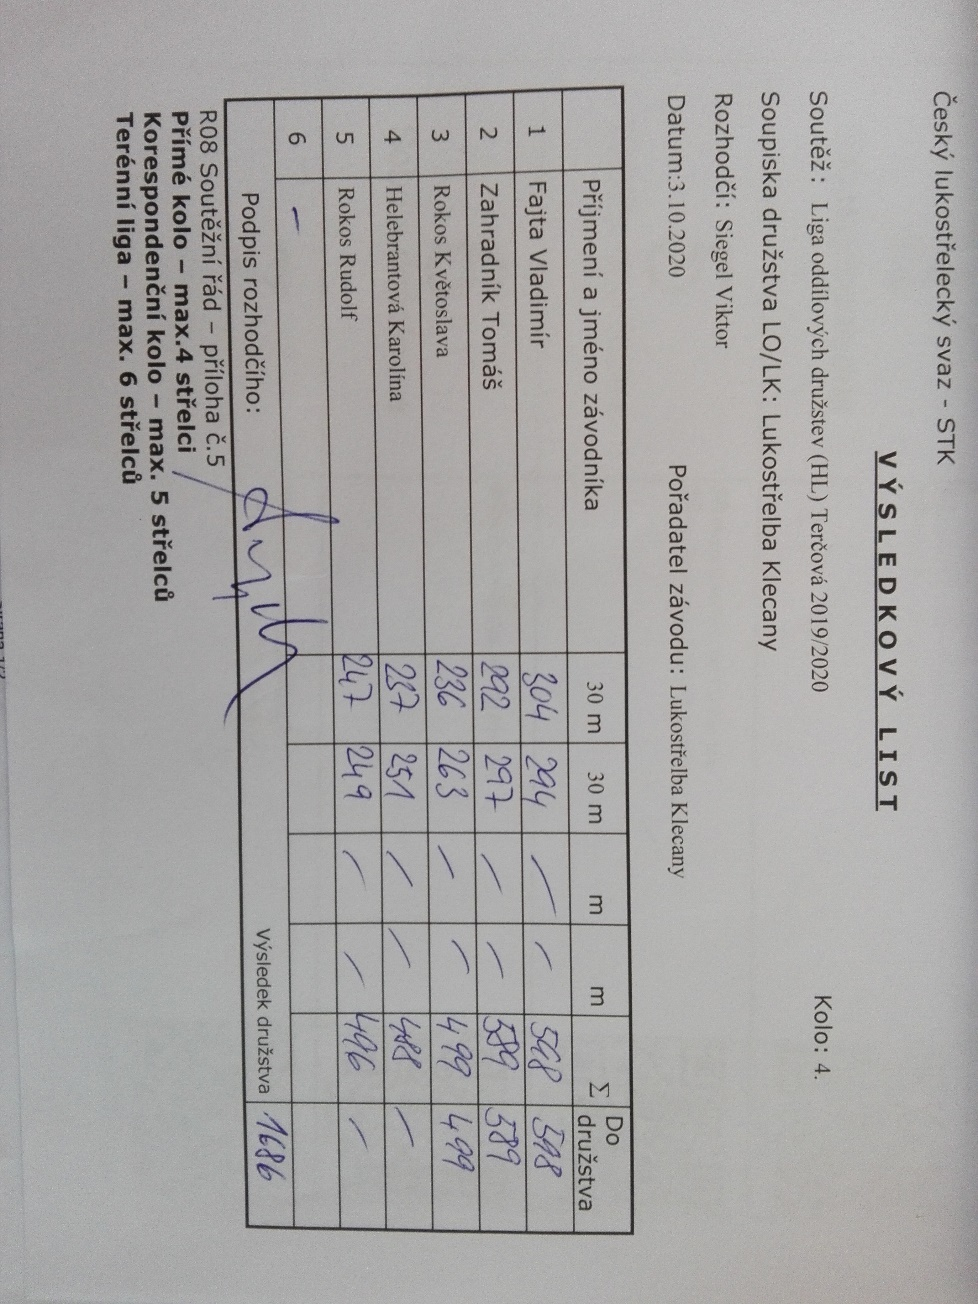 Český lukostřelecký svaz - STK
VÝSLEDKOVÝ LIST
Soutěž: Liga oddílových družstev (HL) Terčová 2019/2020 Kolo: 4.
Soupiska družstva LO/LK: Lukostřelba Klecany
Rozhodčí: Siegel Viktor
Datum:3.10.2020 Pořadatel závodu: Lukostřelba Klecany
Příjmení a jméno závodníka 30 m 30 m m m Σ Do družstva
1 Fajta Vladimír 304 294 — — 598 598
2 Zahradník Tomáš 292 297 — — 589 589
3 Rokos Květoslava 236 263 — — 499 499
4 Helebrantová Karolína 237 251 — — 488 —
5 Rokos Rudolf 247 249 — — 496 —
6 —
Podpis rozhodčího: Výsledek družstva 1686
R08 Soutěžní řád – příloha č.5
Přímé kolo – max.4 střelci
Korespondenční kolo – max. 5 střelců
Terénní liga – max. 6 střelců